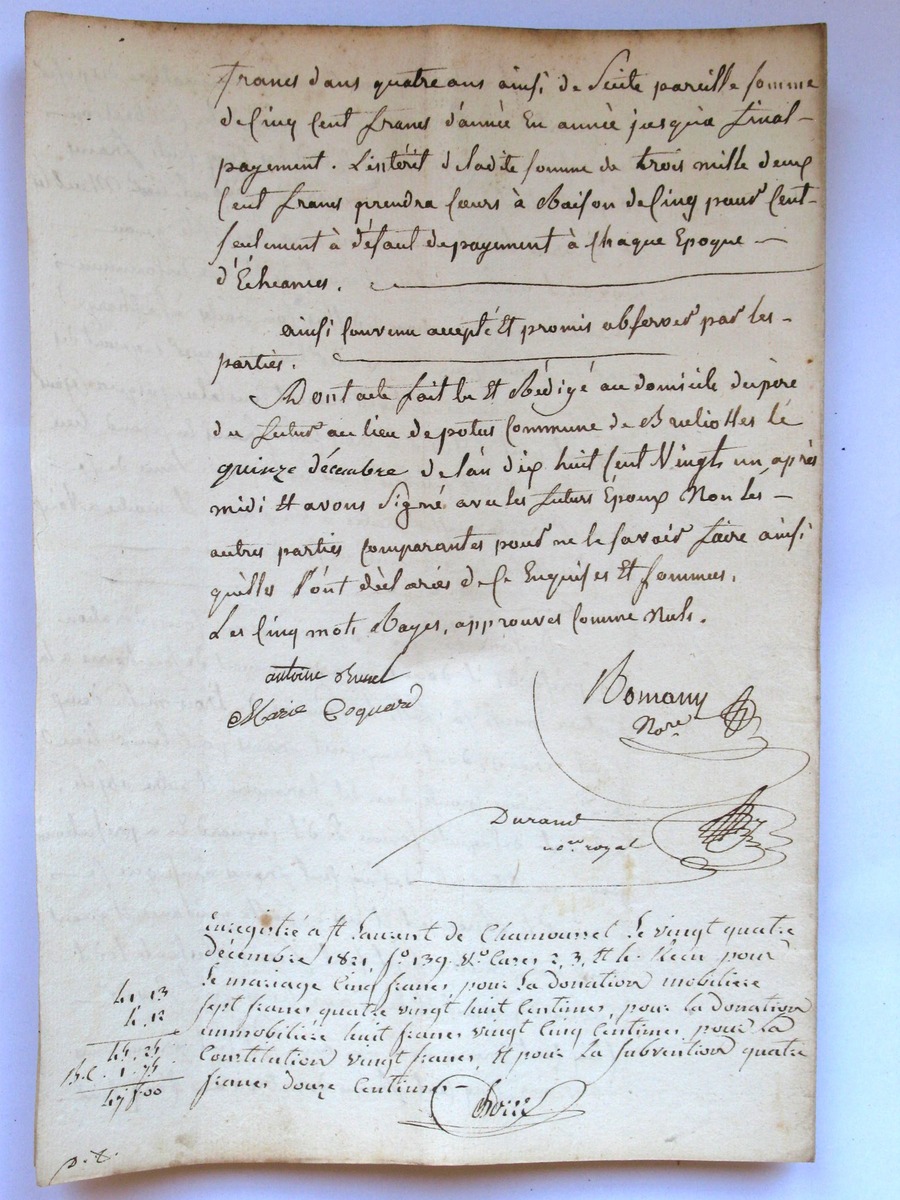 francs dans quatre ans ainsi de suite pareille somme
de cinq cent francs d'année en année jusqu'a final
payement. L'intérêt de ladite somme de trois mille deux
cent francs prendra cours à Raison de cinq pour cent
seulement à défaut de payement à chaque Epoque
d'Echeances.
ainsi convenu accepté Et promis observer par les
parties.
Dont acte fait lu Et Rédigé au domicile du père
du futur au lieu de potus Commune de Brulioles le
quinze décembre de l'an dix huit cent Vingt un, après
midi Et avons Signé avec les futurs Epoux Non les
autres parties Comparantes pour ne le savoir faire ainsi
qu'elles l'ont déclarés de ce Enquises Et sommées.
Les Cinq mots Rayes, approuves Comme Nuls.
antoine
Marie Coquard
Romany
Nore
Durand
nore royal
Enregistré à St Laurent de Chamousset le vingt quatre
décembre 1821 fo 139 Vo Cases 2, 3, et 4. Recu pour
le mariage Cinq francs, pour la donation mobiliere
sept francs quatre vingt huit Centimes, pour la donation
immobiliére huit francs vingt Cinq Centimes pour la
Constitution vingt francs, Et pour la subvention quatre
francs douze Centimes
41 13
4. 12
45. 25
1. 75
47 f 00